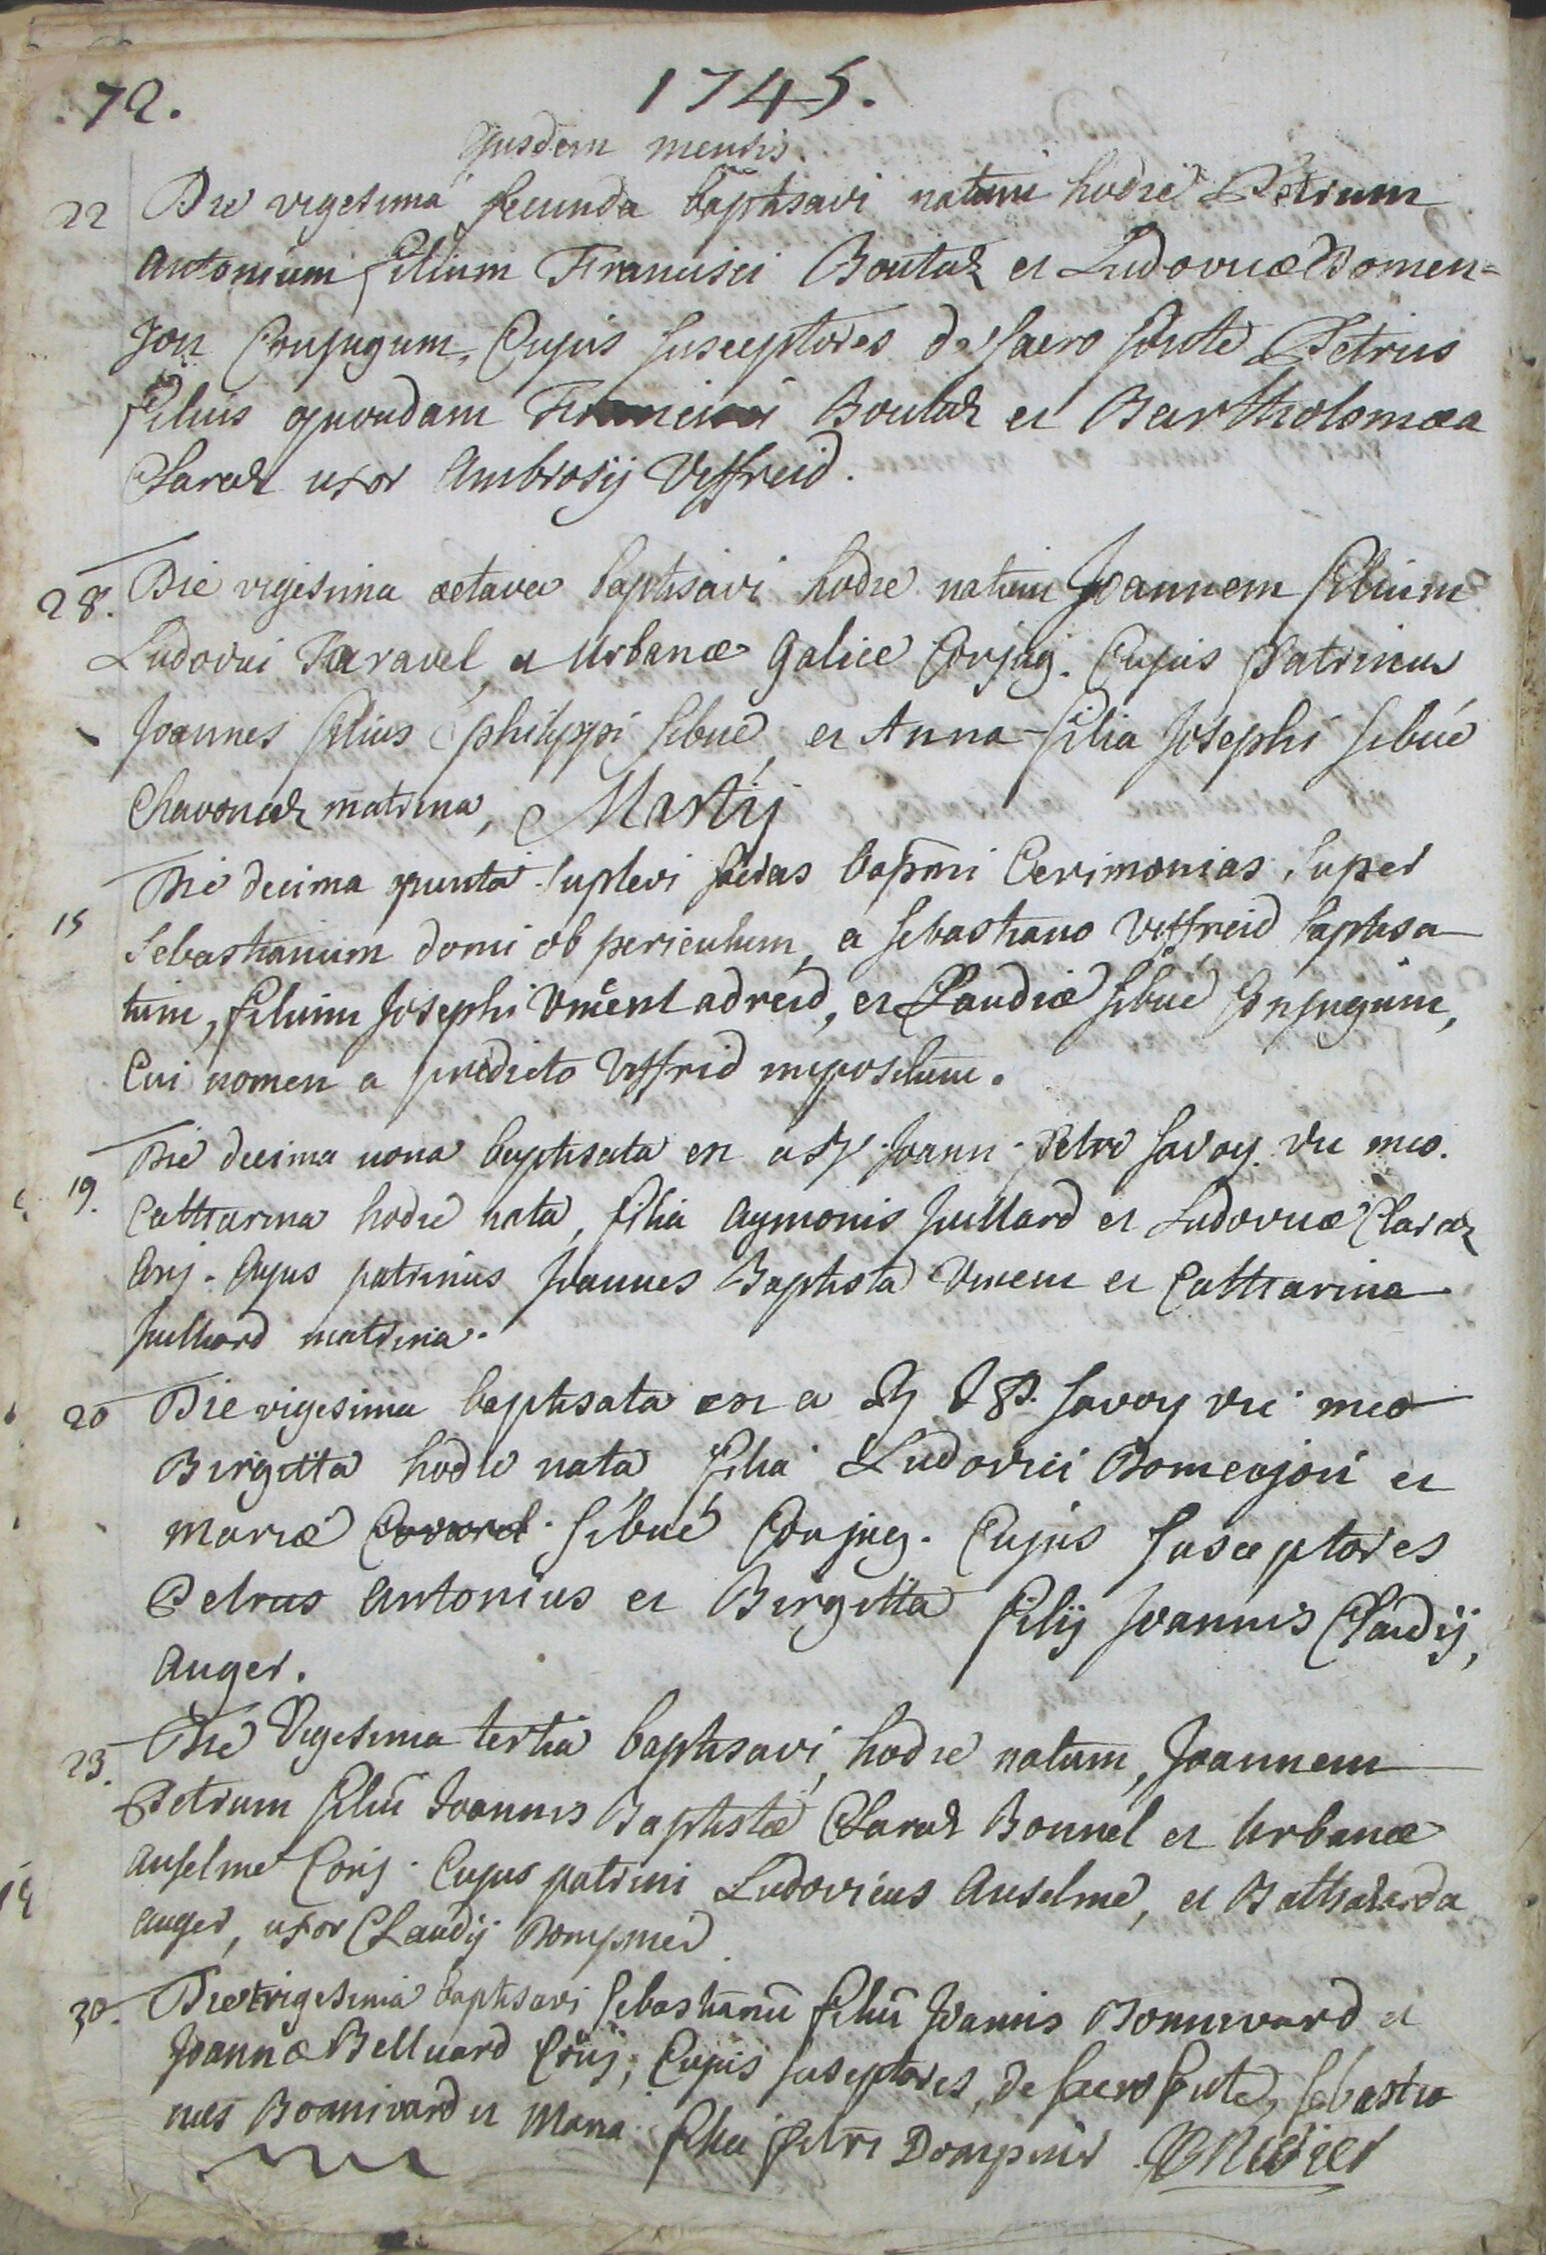 72.
1745.
ejusdem mensis
22 Die vigesima secunda baptisavi natum hodie Petrum
Antonium filium Francisci Boutaz et Ludovicæ Domen=
jon Conjugum, Cujus susceptores de sacro fonte Petrus
filius quondam Francisci Boutaz et Bartholomæa
Claraz uxor Ambrosij Veffreid.
28. Die vigesima octava baptisavi hodie natum Joannem filium
Ludovici Taravel et Urbanæ Galice Conjug. Cujus Patrinus
Joannes filius philippi Sibué, et Anna filia Josephi Sibué
Chavonaz matrina, Martij
15 Die decima quinta suplevi sacras bapmi Cerimonias super
Sebastianum domi ob periculum, a Sebastiano Veffreid baptisa
tum, filium Josephi Vincent adreid, et Claudiæ Sibué Conjugum,
Cui nomen a predicto Veffrid impositum.
19. Die decima nona baptisata est a Joann. Petro Savoy. vic meo.
Catharina hodie nata, filia Aymonis Juillard et Ludovicæ Claraz
Conj. Cujus patrinus Joannes Baptista Vincent et Catharina
Juillard matrina.
20 Die vigesima baptisata est a J P. Savoy vic meo
Birgitta hodie nata, filia Ludovici Domenjon et
Mariæ Sibué Conjug. Cujus Susceptores
Petrus Antonius et Birgitta filij Joannis Claudij,
Auger.
23. Die Vigesima tertia baptisavi, hodie natum, Joannem
Petrum filiū Joannis Baptistæ Claraz Bonnel et Urbanæ
Anselme Conj. Cujus patrini Ludovicus Anselme, et Bathazarda
Auger, uxor Claudij Dompnier
30. Die trigesima baptisavi Sebastianū filiū Joannis Bonnivard et
Joannæ Belluard Conj; Cujus Susceptores, De sacro fonte, Sebastia
nus Bonnivard et Maria filia Petri Dompnier